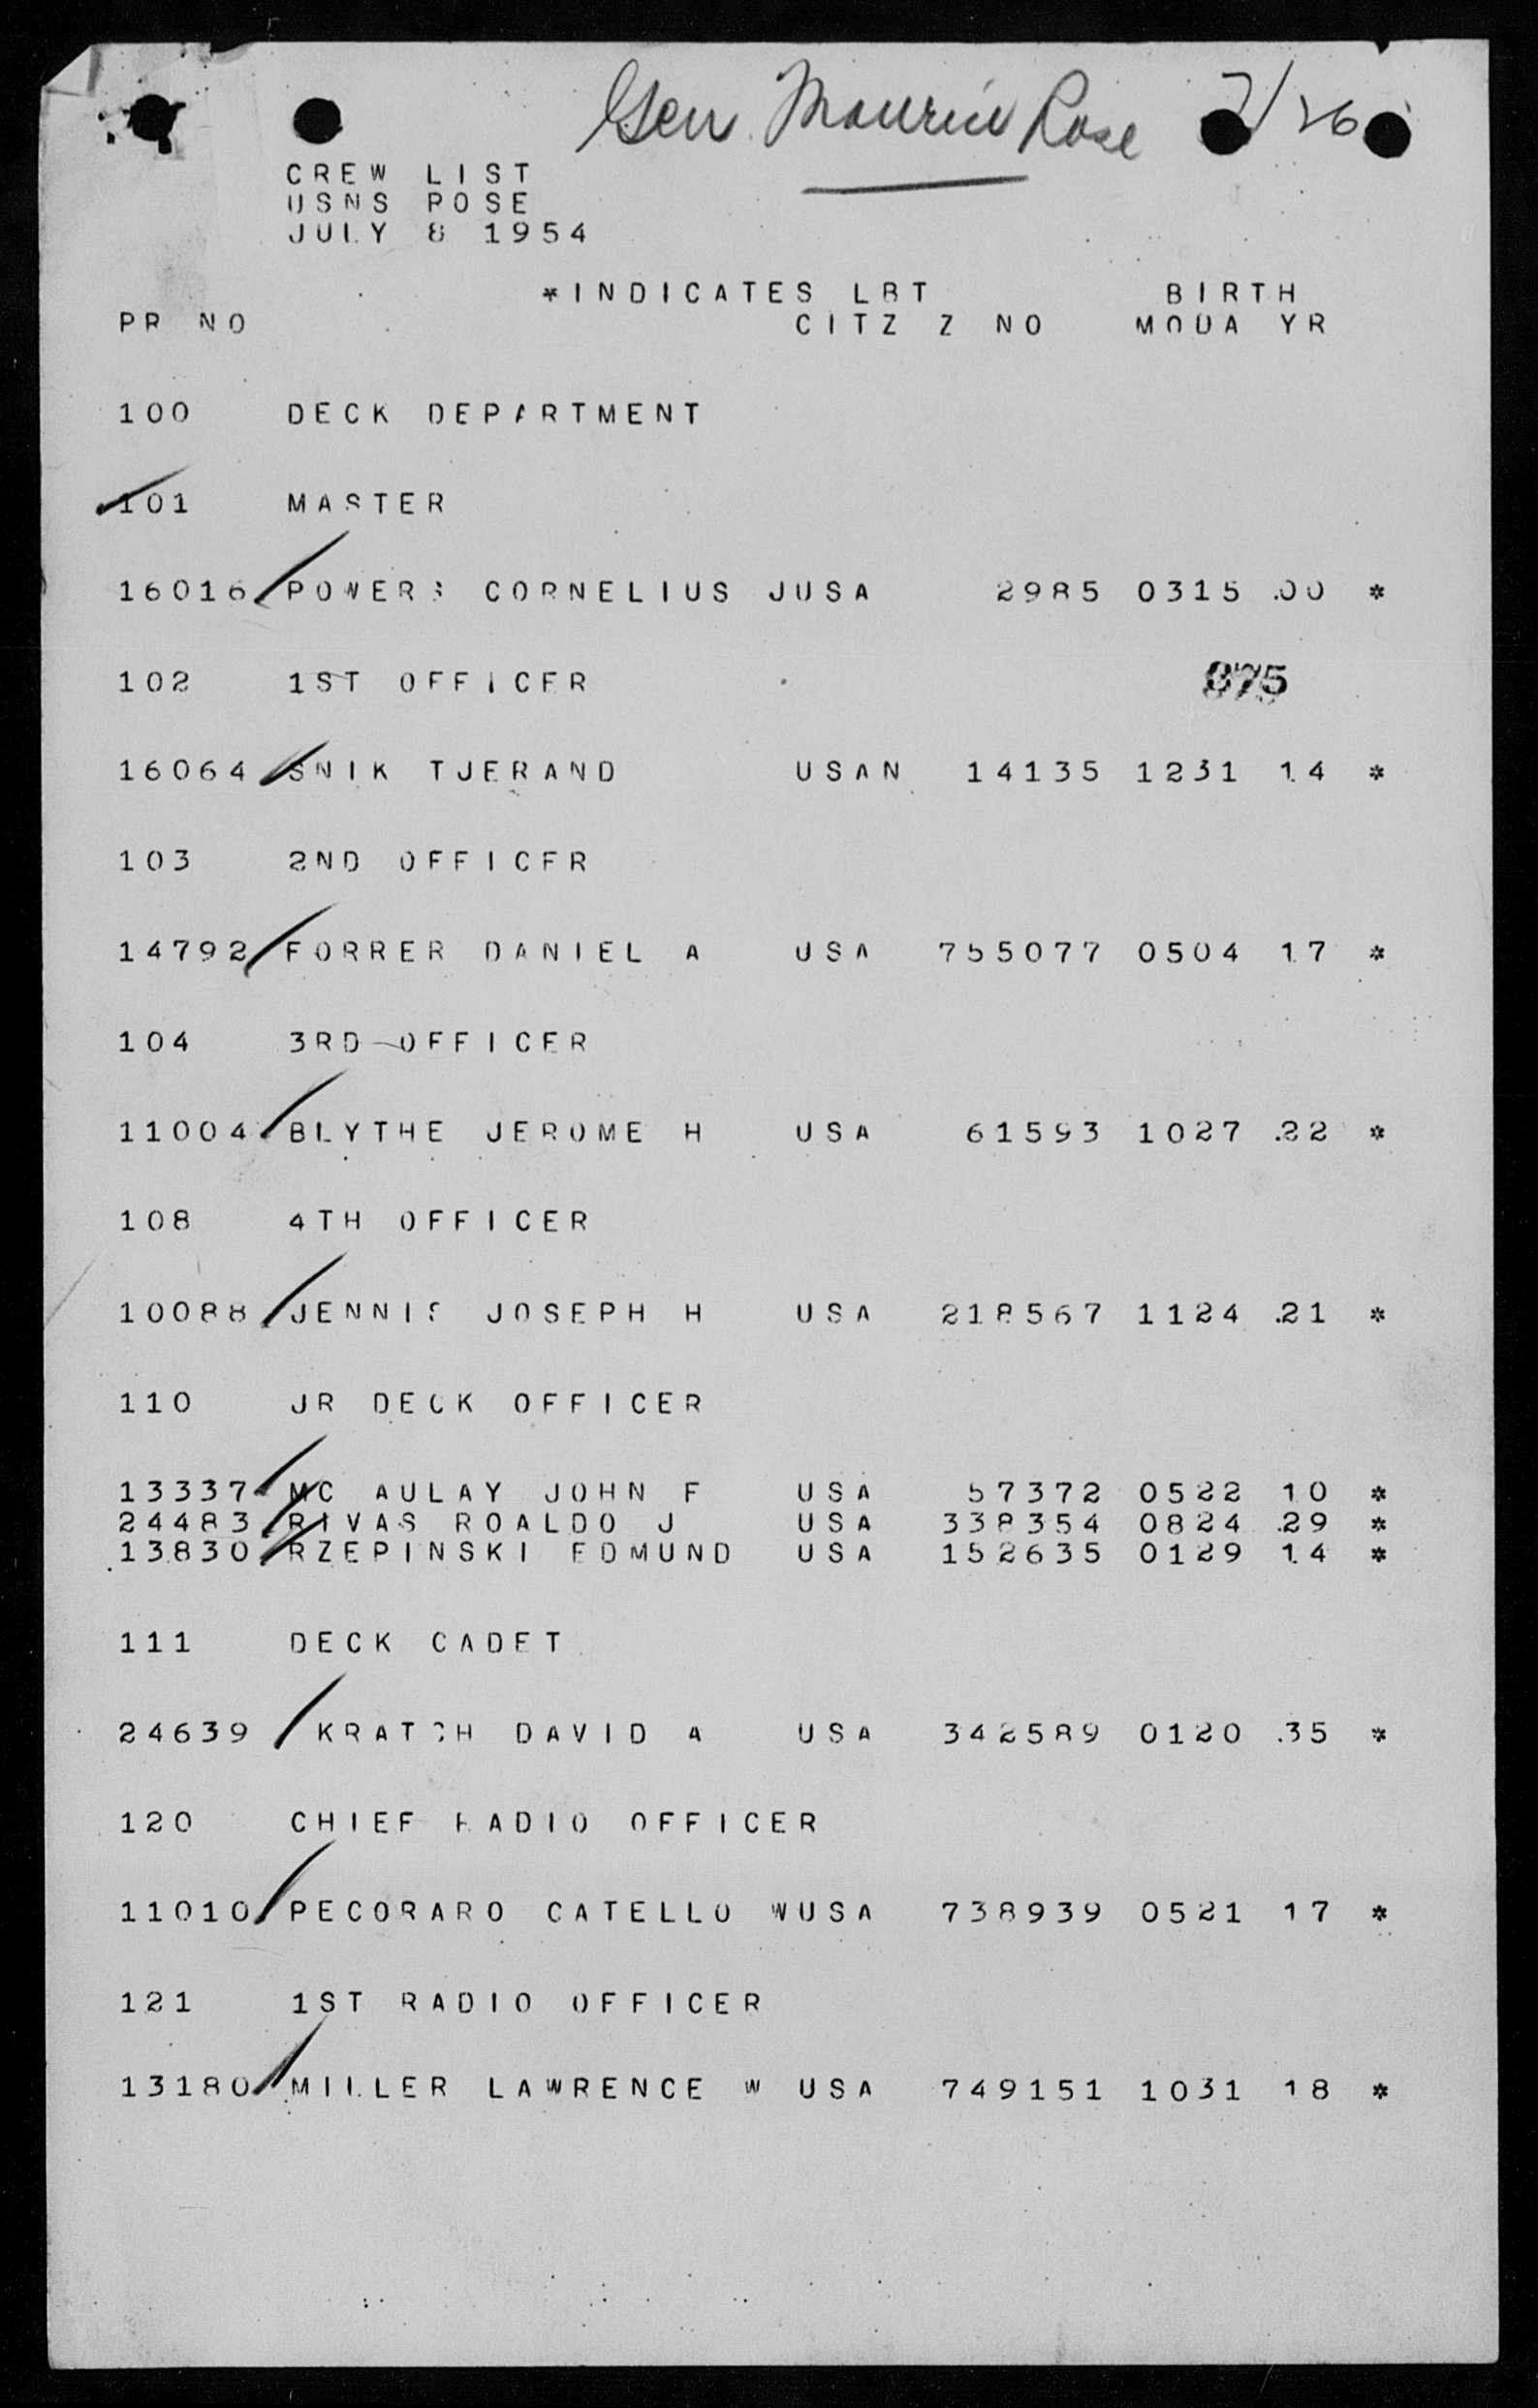 Gen Maurice Rose 7/26
CREW LIST
USNS ROSE
JULY 8 1954
*INDICATES LBT BIRTH
PR NO CITZ Z NO MODA YR
100 DECK DEPARTMENT
101 MASTER
16016 POWERS CORNELIUS JUSA 2985 0315 00 *
102 1ST OFFICER 975
16064 SNIK TJERAND USAN 14135 1231 14 *
103 2ND OFFICER
14792 FORRER DANIEL A USA 755077 0504 17 *
104 3RD OFFICER
11004 BLYTHE JEROME H USA 61593 1027 22 *
108 4TH OFFICER
10088 JENNIS JOSEPH H USA 218567 1124 21 *
110 JR DECK OFFICER
13337 MC AULAY JOHN F USA 57372 0522 10 *
24483 RIVAS ROALDO J USA 338354 0824 29 *
13830 RZEPINSKI EDMUND USA 152635 0129 14 *
111 DECK CADET
24639 KRATCH DAVID A USA 342589 0120 35 *
120 CHIEF RADIO OFFICER
11010 PECORARO CATELLO WUSA 738939 0521 17 *
121 1ST RADIO OFFICER
13180 MILLER LAWRENCE W USA 749151 1031 18 *